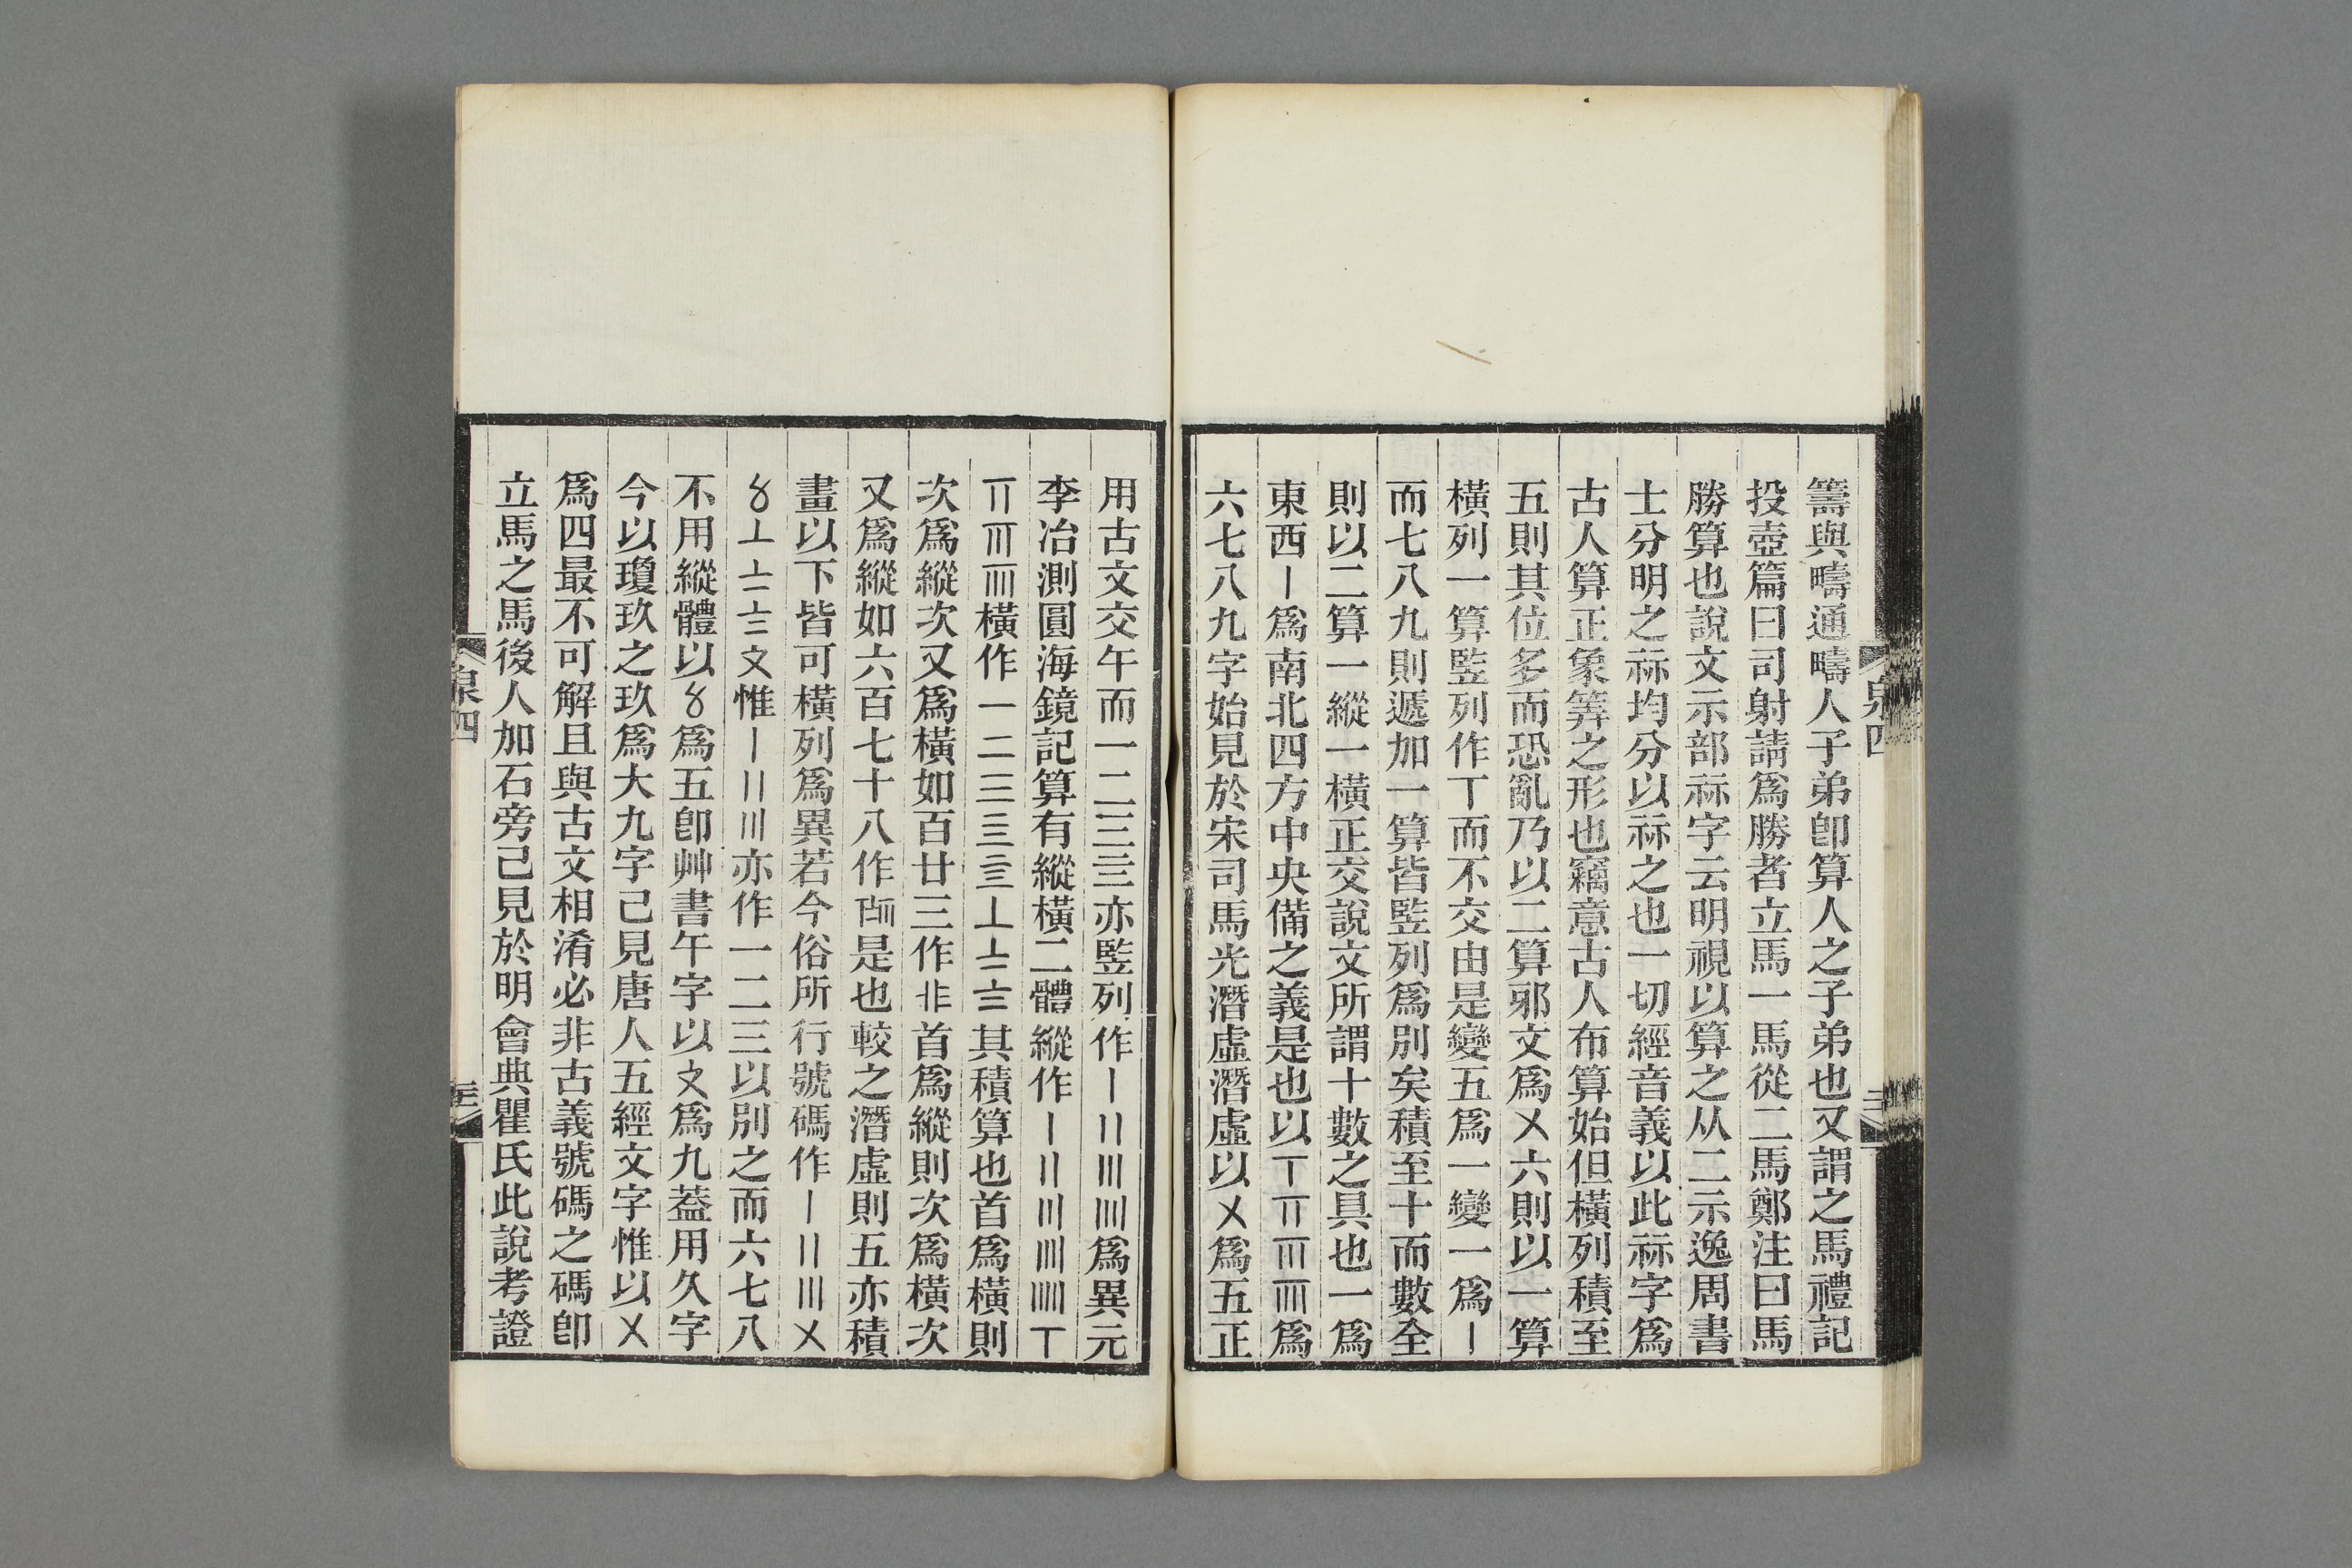 籌與疇通疇人子弟卽算人之子弟也又謂之馬禮記
投壺篇曰司射請爲勝者立馬一馬從二馬鄭注曰馬
勝算也說文示部祘字云明視以算之从二示逸周書
士分明之祘均分以祘之也一切經音義以此祘字爲
古人算正象筭之形也竊意古人布算始但橫列積至
五則其位多而恐亂乃以二算邪文爲㐅六則以一算
橫列一算竪列作丅而不交由是變五爲一變一爲〡
而七八九則遞加一算皆竪列爲別矣積至十而數全
則以二算一縱一橫正交說文所謂十數之具也一爲
東西〡爲南北四方中央備之義是也以〒𝍮𝍯𝍰爲
六七八九字始見於宋司馬光潛虛潛虛以㐅爲五正
用古文交午而一二三亖亦竪列作𝍩𝍪𝍫𝍬爲異元
李冶測圓海鏡記算有縱橫二體縱作𝍩𝍪𝍫𝍬𝍭𝍮
𝍯𝍰𝍱橫作𝍠𝍡𝍢𝍣𝍤𝍥𝍦𝍧其積算也首爲橫則
次爲縱次又爲橫如百廿三作𝍩𝍡𝍫首爲縱則次爲橫次
又爲縱如六百七十八作𝍮𝍦𝍰是也較之潛虛則五亦積
畫以下皆可橫列爲異若今俗所行號碼作〡〢〣〤
〥〦〧〨〩惟〡〢〣亦作一二三以別之而六七八
不用縱體以〥爲五卽艸書午字以〩爲九葢用久字
今以瓊玖之玖爲大九字己見唐人五經文字惟以〤
爲四最不可解且與古文相淆必非古義號碼之碼卽
立馬之馬後人加石旁己見於明會典瞿氏此說考證
泉四
泉四